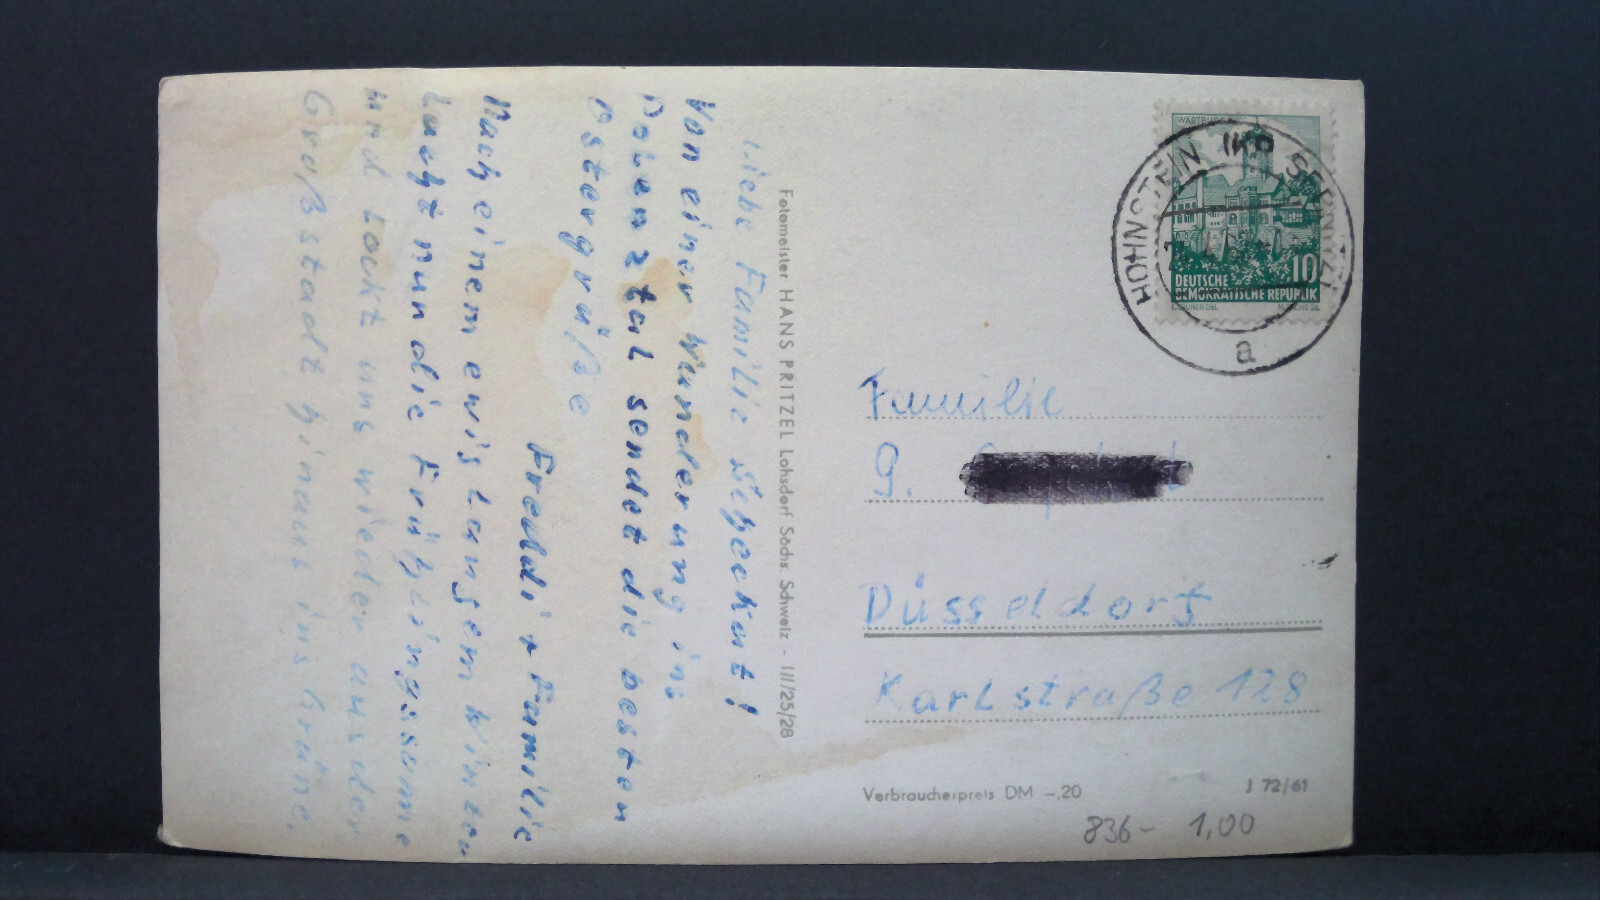 Liebe Familie
Von einer Wanderung ins
Polenztal sendet die besten
Ostergrüße
Freddi + Familie
Nach einem ewis langem Winter
Lacht nun die Frühlingssonne
und Lockt uns wieder aus der
Großstadt hinaus ins Grüne.
Fotomeister HANS PRITZEL Lohsdorf Sächs. Schweiz - III/25/28
WARTBURG
10
DEUTSCHE
DEMOKRATISCHE REPUBLIK
HOHNSTEIN (KR SEBNITZ)
a
Familie
G.
Düsseldorf
Karlstraße 128
Verbraucherpreis DM -.20
J 72/61
836- 1,00